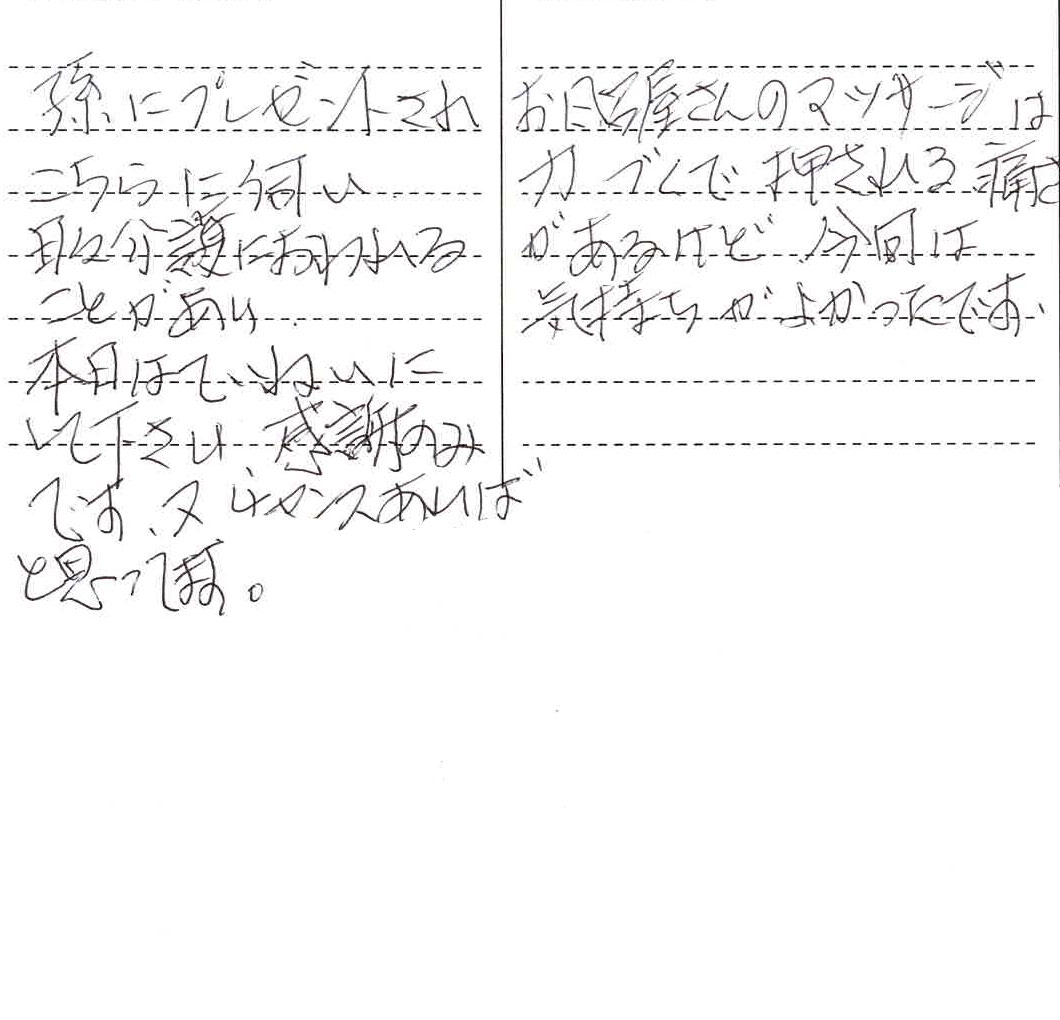 孫にプレゼントされ
こちらに伺い
日々介護におわれる
ことがあり
本日はていねいに
して下さり、感謝のみ
です、又チャンスあれば
と思ってます。
お風呂屋さんのマッサージは
力づくで押される痛さ
があるけど、今回は
気持ちがよかったです、